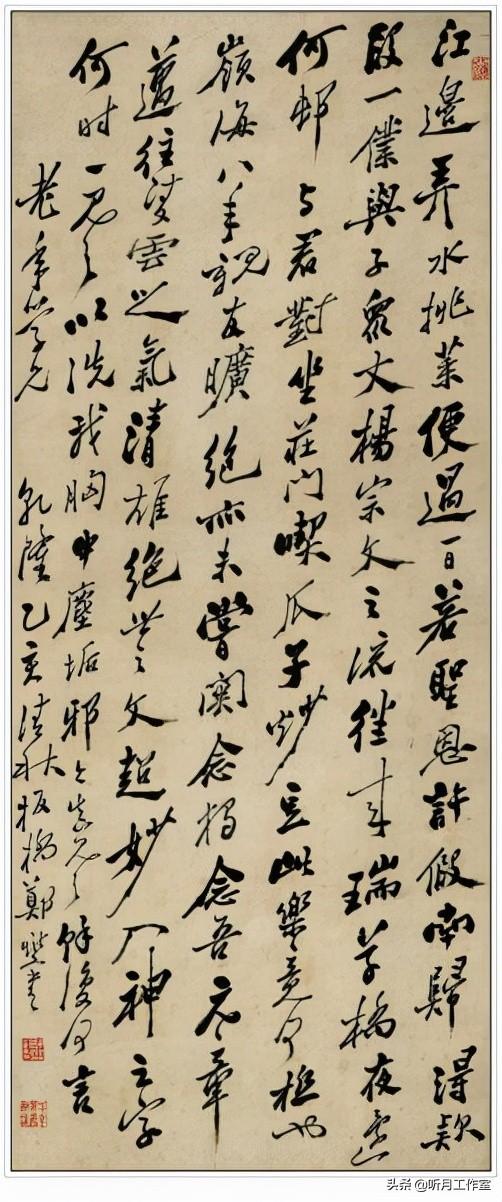 江邊弄水挑菜便過一日若聖恩許假南歸得款
段一僕與子衆丈楊宗文之流往來瑞草橋夜還
何邨与君對坐莊門喫瓜子炒豆此樂竟何極也
嶺海八年親友曠絕亦未嘗關念獨念吾元章
邁往凌雲之氣清雄絕世之文超妙入神之字
何時一見之以洗我胸中塵垢邪今真見之餘復何言
老年學兄 乾隆乙亥清秋板橋鄭燮書
头条 @听月工作室